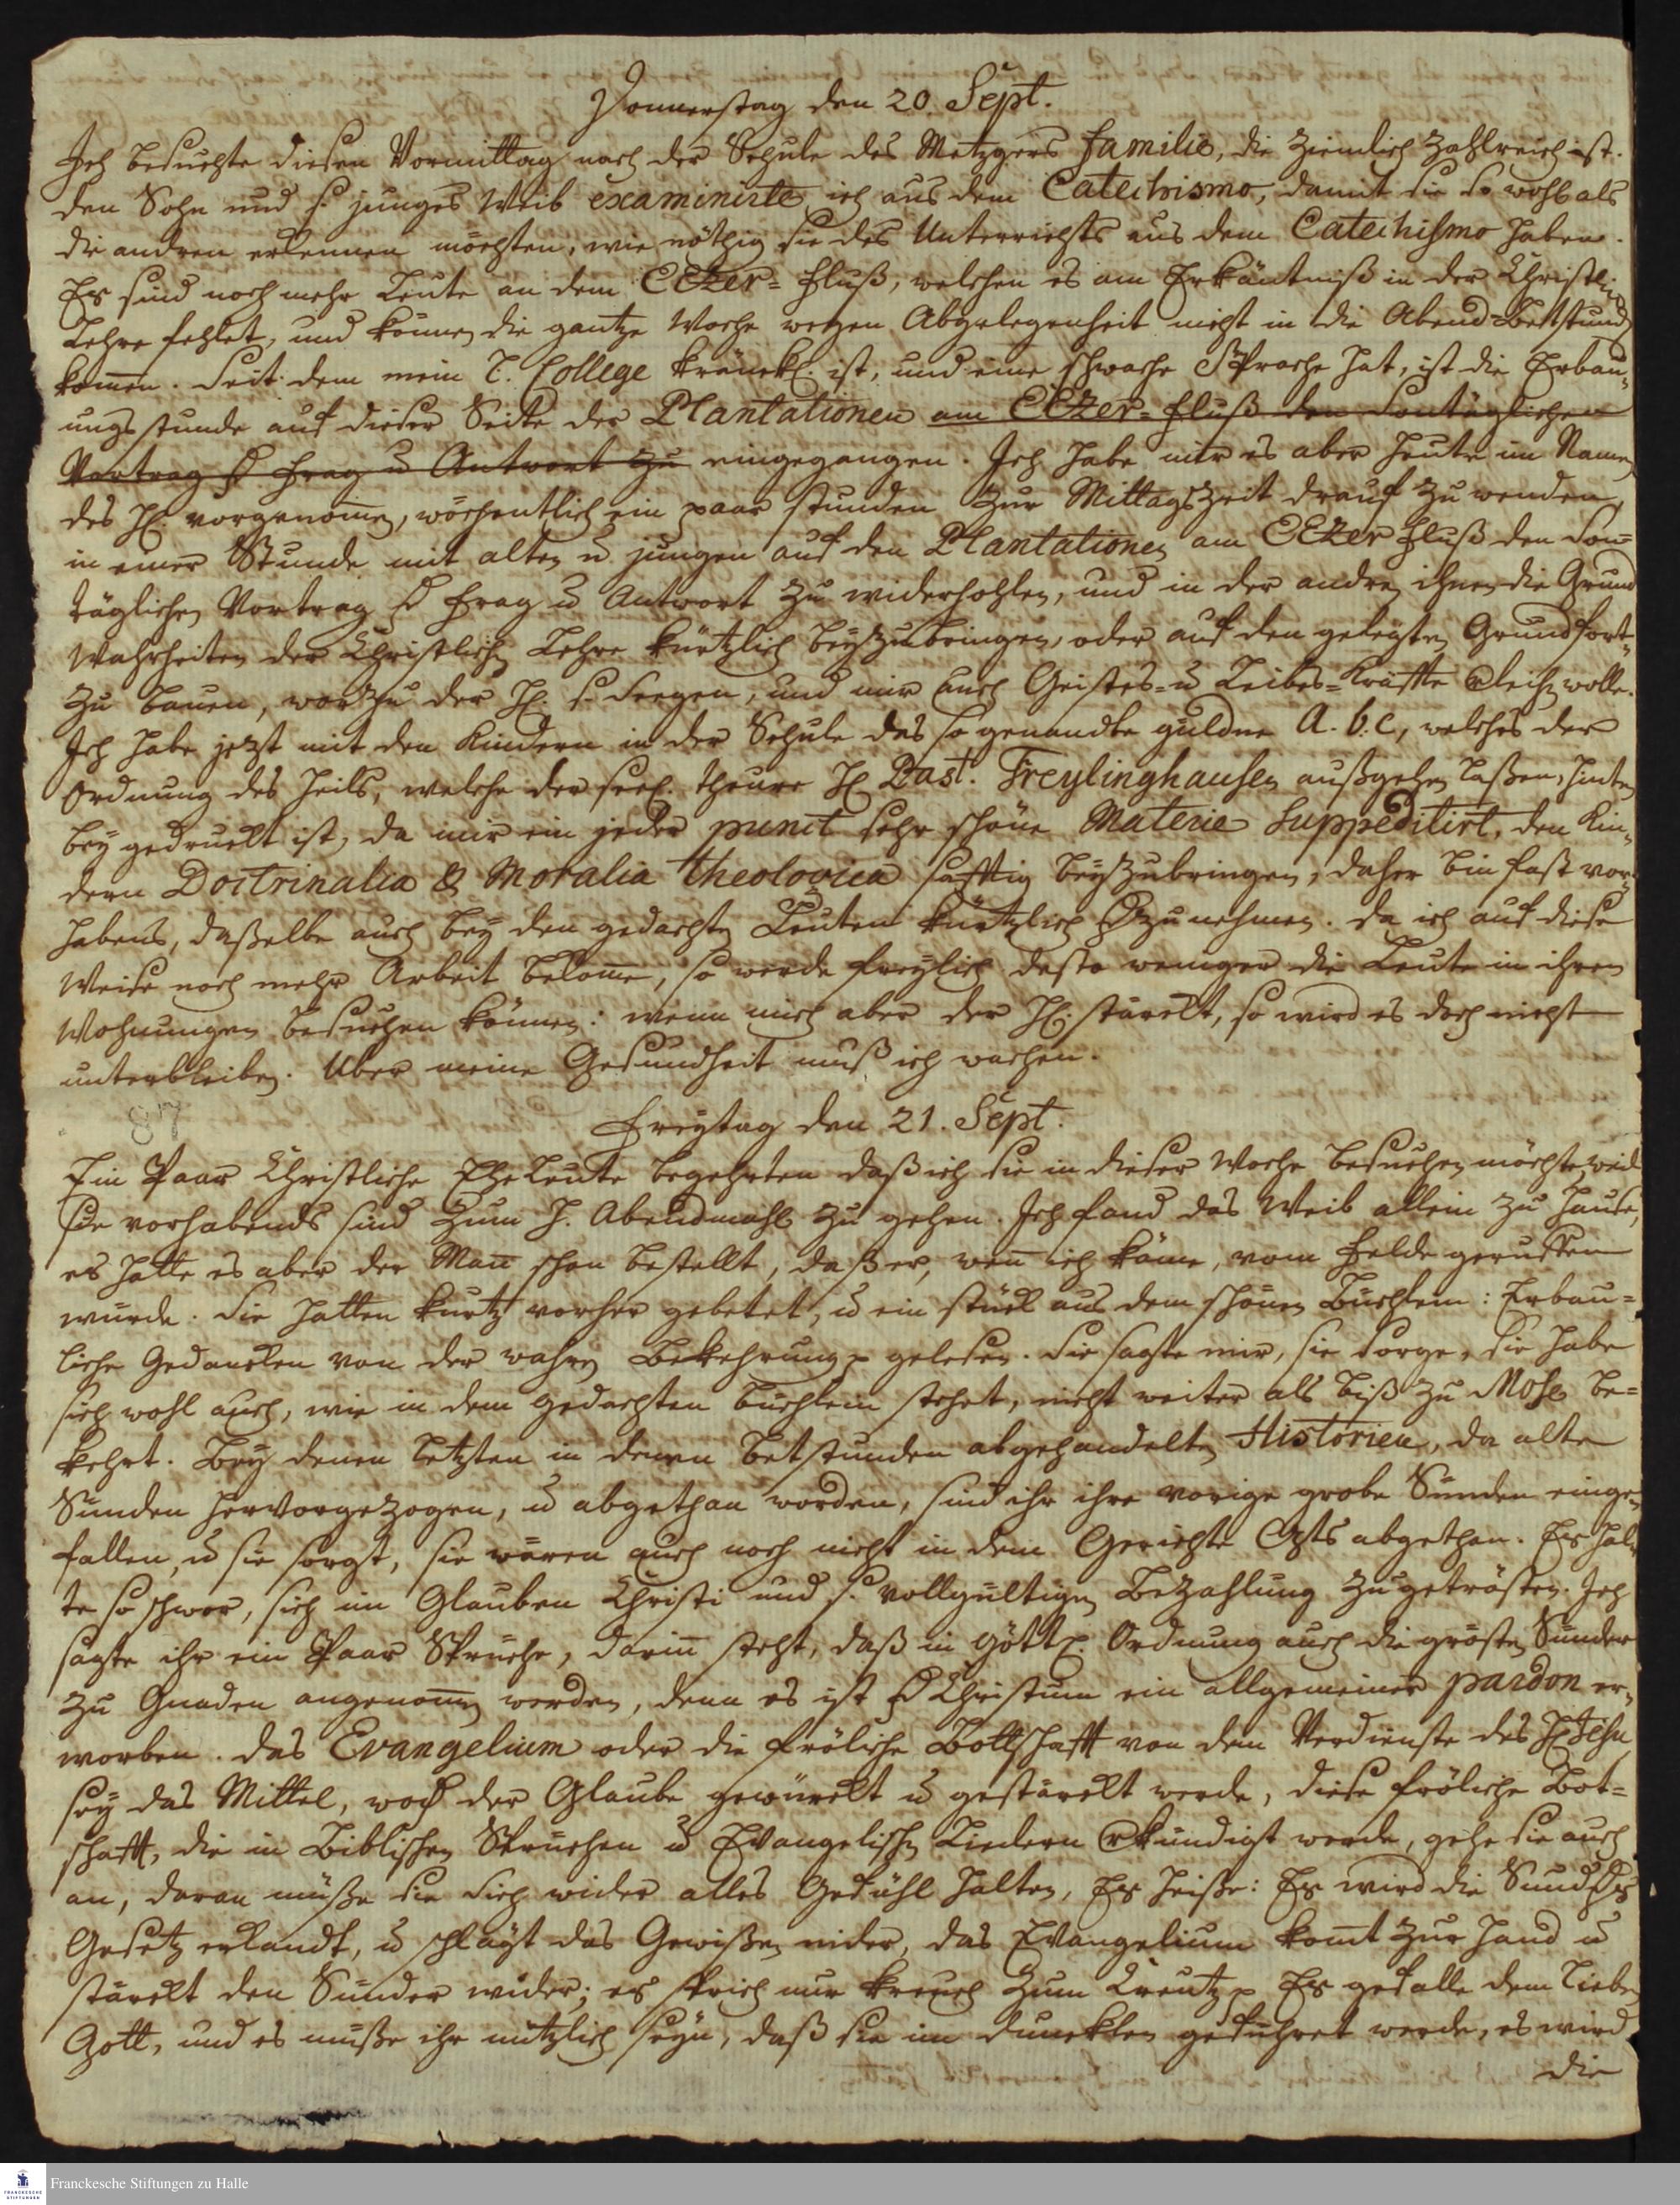 Donnerstag den 20. Sept.
Ich besuchte diesen Vormittag nach der Schule des Metzgers Familie, die ziemlich zahlreich ist.
den Sohn und s. junges Weib examinirte ich aus dem Catechismo, damit sie so wohl als
die andren erkennen möchten, wie nöthig sie des Unterrichts aus dem Catechismo haben.
Es sind noch mehr Leute an dem Fluß, welchen es am Erkäntniß in der Christl.
Lehre fehlet, und können die gantze Woche wegen Abgelegenheit nicht in die Abend-Betstund
kom̅en. Seit dem mein l. College kränckl. ist, und eine schwache Sprache hat, ist die Erbau-
ungs stunde auf dieser Seite der Plantationen am Fluß den Sontäglichen
Vortrag Frag u Antwort zu eingegangen. Ich habe mir es aber heute im Namen
des H. vorgenom̅en, wöchentlich ein paar stunden zur Mittagszeit drauf zu wenden,
in einer Stunde mit alten u jungen auf den Plantationen am Fluß den Son-
täglichen Vortrag Frag u Antwort zu widerhohlen, und in der andren ihnen die Grund
Wahrheiten der Christlichen Lehre kürtzlich beyzubringen, oder auf den gelegten Grund fort-
zu bauen, worzu der H. s. Seegen, und mir auch Geistes- u Leibes-Kräffte verleihen wolle.
Ich habe jetzt mit den Kindern in der Schule das so genandte güldne A. b. c, welches der
Ordnung des Heils, welche der seel. theure H. Past. Freylinghausen außgehen laßen, hinten
bey gedruckt ist, da mir ein jeder punct sehr schöne Materie suppeditirt, den Kin-
dern Doctrinalia & Moralia theologica safftig beyzubringen, daher bin fast vor-
habens, daßelbe auch bey den gedachten Leuten kürtzlich zunehmen. da ich auf diese
Weise noch mehr Arbeit bekom̅e, so werde freylich desto weniger die Leute in ihren
Wohnungen besuchen können: wenn mich aber der H. stärckt, so wird es doch nicht
unterbleiben. Uber meine Gesundheit muß ich wachen.
87
Freytag den 21. Sept.
Ein Paar Christliche Eheleute begehrten daß ich sie in dieser Woche besuchen möchte, weil
sie vorhabends sind zum H. Abendmahl zu gehen. Ich fand das Weib allein zu Hause,
es hatte es aber der Man̅ schon bestellt, daß er, wen̅ ich käme, vom Felde geruffen
wurde. Sie hatten kurtz vorher gebetet, u ein stück aus dem schönen Büchlein: Erbau-
liche Gedancken von der wahren Bekehrung gelesen. Sie sagte mir, sie sorge, sie habe
sich wohl auch, wie in dem gedachten büchlein stehet, nicht weiter als biß zu Mose be-
kehrt. Bey denen letzten in denen Betstunden abgehandelten Historien, da alte
Sünden hervorgezogen, u abgethan worden, sind ihr ihre vorige grobe Sünden einge-
fallen, u sie sorgt, sie wären auch noch nicht in dem Gerichte Gottes abgethan. Es hal-
te so schwer, sich im Glauben Christi und s. vollgültigen Bezahlung zu getrösten. Ich
sagte ihr ein Paar Sprüche, darin̅ steht, daß in göttl. Ordnung auch die grösten Sünder
zu Gnaden angenom̅en werden, denn es ist Christum ein allgemeiner pardon er-
worben. das Evangelium oder die fröliche Bottschafft von dem Verdienste des H. Jesu
sey das Mittel, der Glaube gewürckt u gestärckt werde, diese fröliche Bot-
schafft, die in Biblischen Sprüchen u Evangelischen Liedern verkündigt werde, gehe sie auch
an, daran müße sie sich wider alles Gefühl halten, Es heiße: Es wird die Sünd
Gesetz erkandt, u schlägt das Gewißen nider, das Evangelium kom̅t zur Hand u
stärckt den Sünder wider; es sprich nur kreuch zum Creutz Es gefalle dem lieben
Gott, und es müße ihr nützlich seyn, daß sie im duncklen geführet werde, es wird
die
Franckesche Stiftungen zu Halle